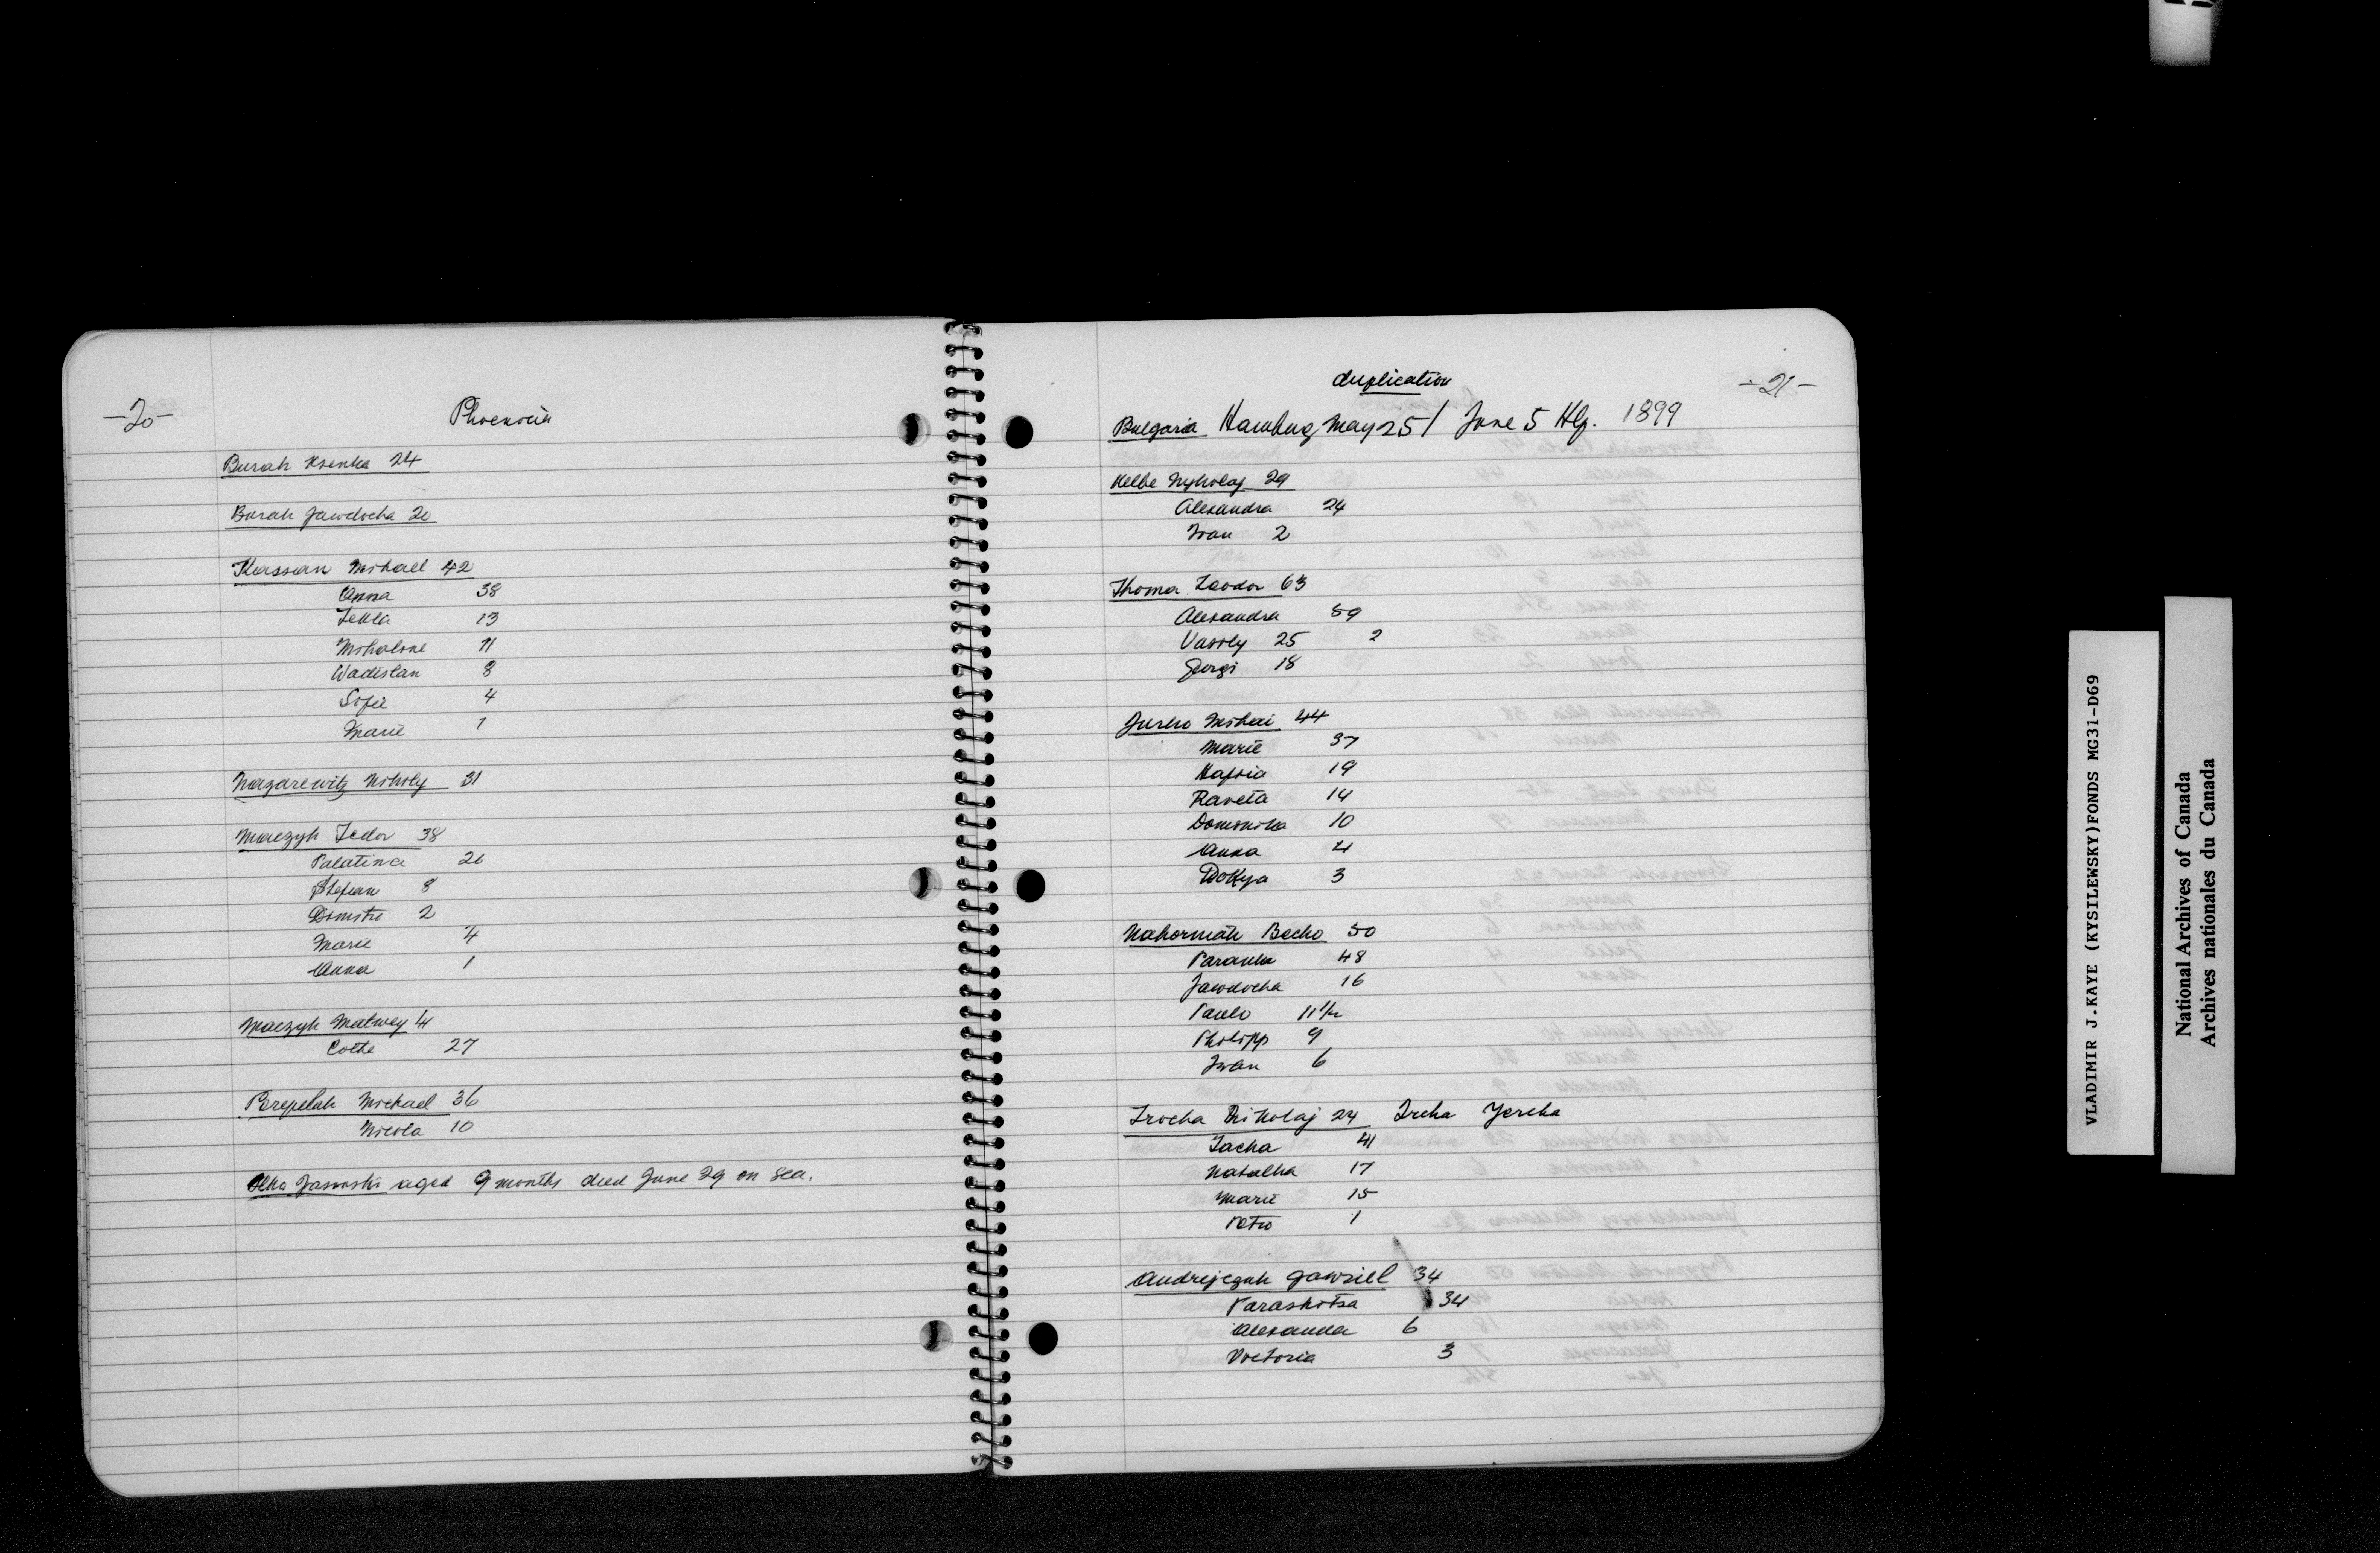 -20-
Phoenicia
Burak Ksenka 24
Burak Jawdocha 20
Kassian Mihael 42
Anna 38
Tekla 13
Mihaline 11
Wadislan 8
Sofie 4
Marie 1
Nazarewitz Nikoly 31
Maczyk Fedor 38
Palatina 26
Stefan 8
Dimitre 2
Marie 4
Anna 1
Maczyk Matwey 41
27
Perepelak Michael 36
Nicola 10
Jasinski aged 9 months died June 29 on sea.
duplication
-21-
Bulgaria Hamburg May 25 / June 5 Hlf. 1899
Kelbe Mykolaj 29
Alexandra 24
Ivan 2
Thoma Teodor 63
Alexandra 59
Vasily 25 2
Georgi 18
Jurko Mihai 44
Marie 37
Hafia 19
Raveta 14
Dominika 10
Anna 4
Dokya 3
Nakorniak Becho 50
Paranka 48
Jawdocha 16
Paulo 11 1/2
Philipp 9
Iwan 6
Irocha Nikolaj 24 Ircha Yercha
Jacha 41
Natalka 17
Marie 15
Petro 1
Andrijczuk Gawriel 34
Paraskitsa 34
Alexander 6
Victoria 3
VLADIMIR J.KAYE (KYSILEWSKY)FONDS MG31-D69
National Archives of Canada
Archives nationales du Canada